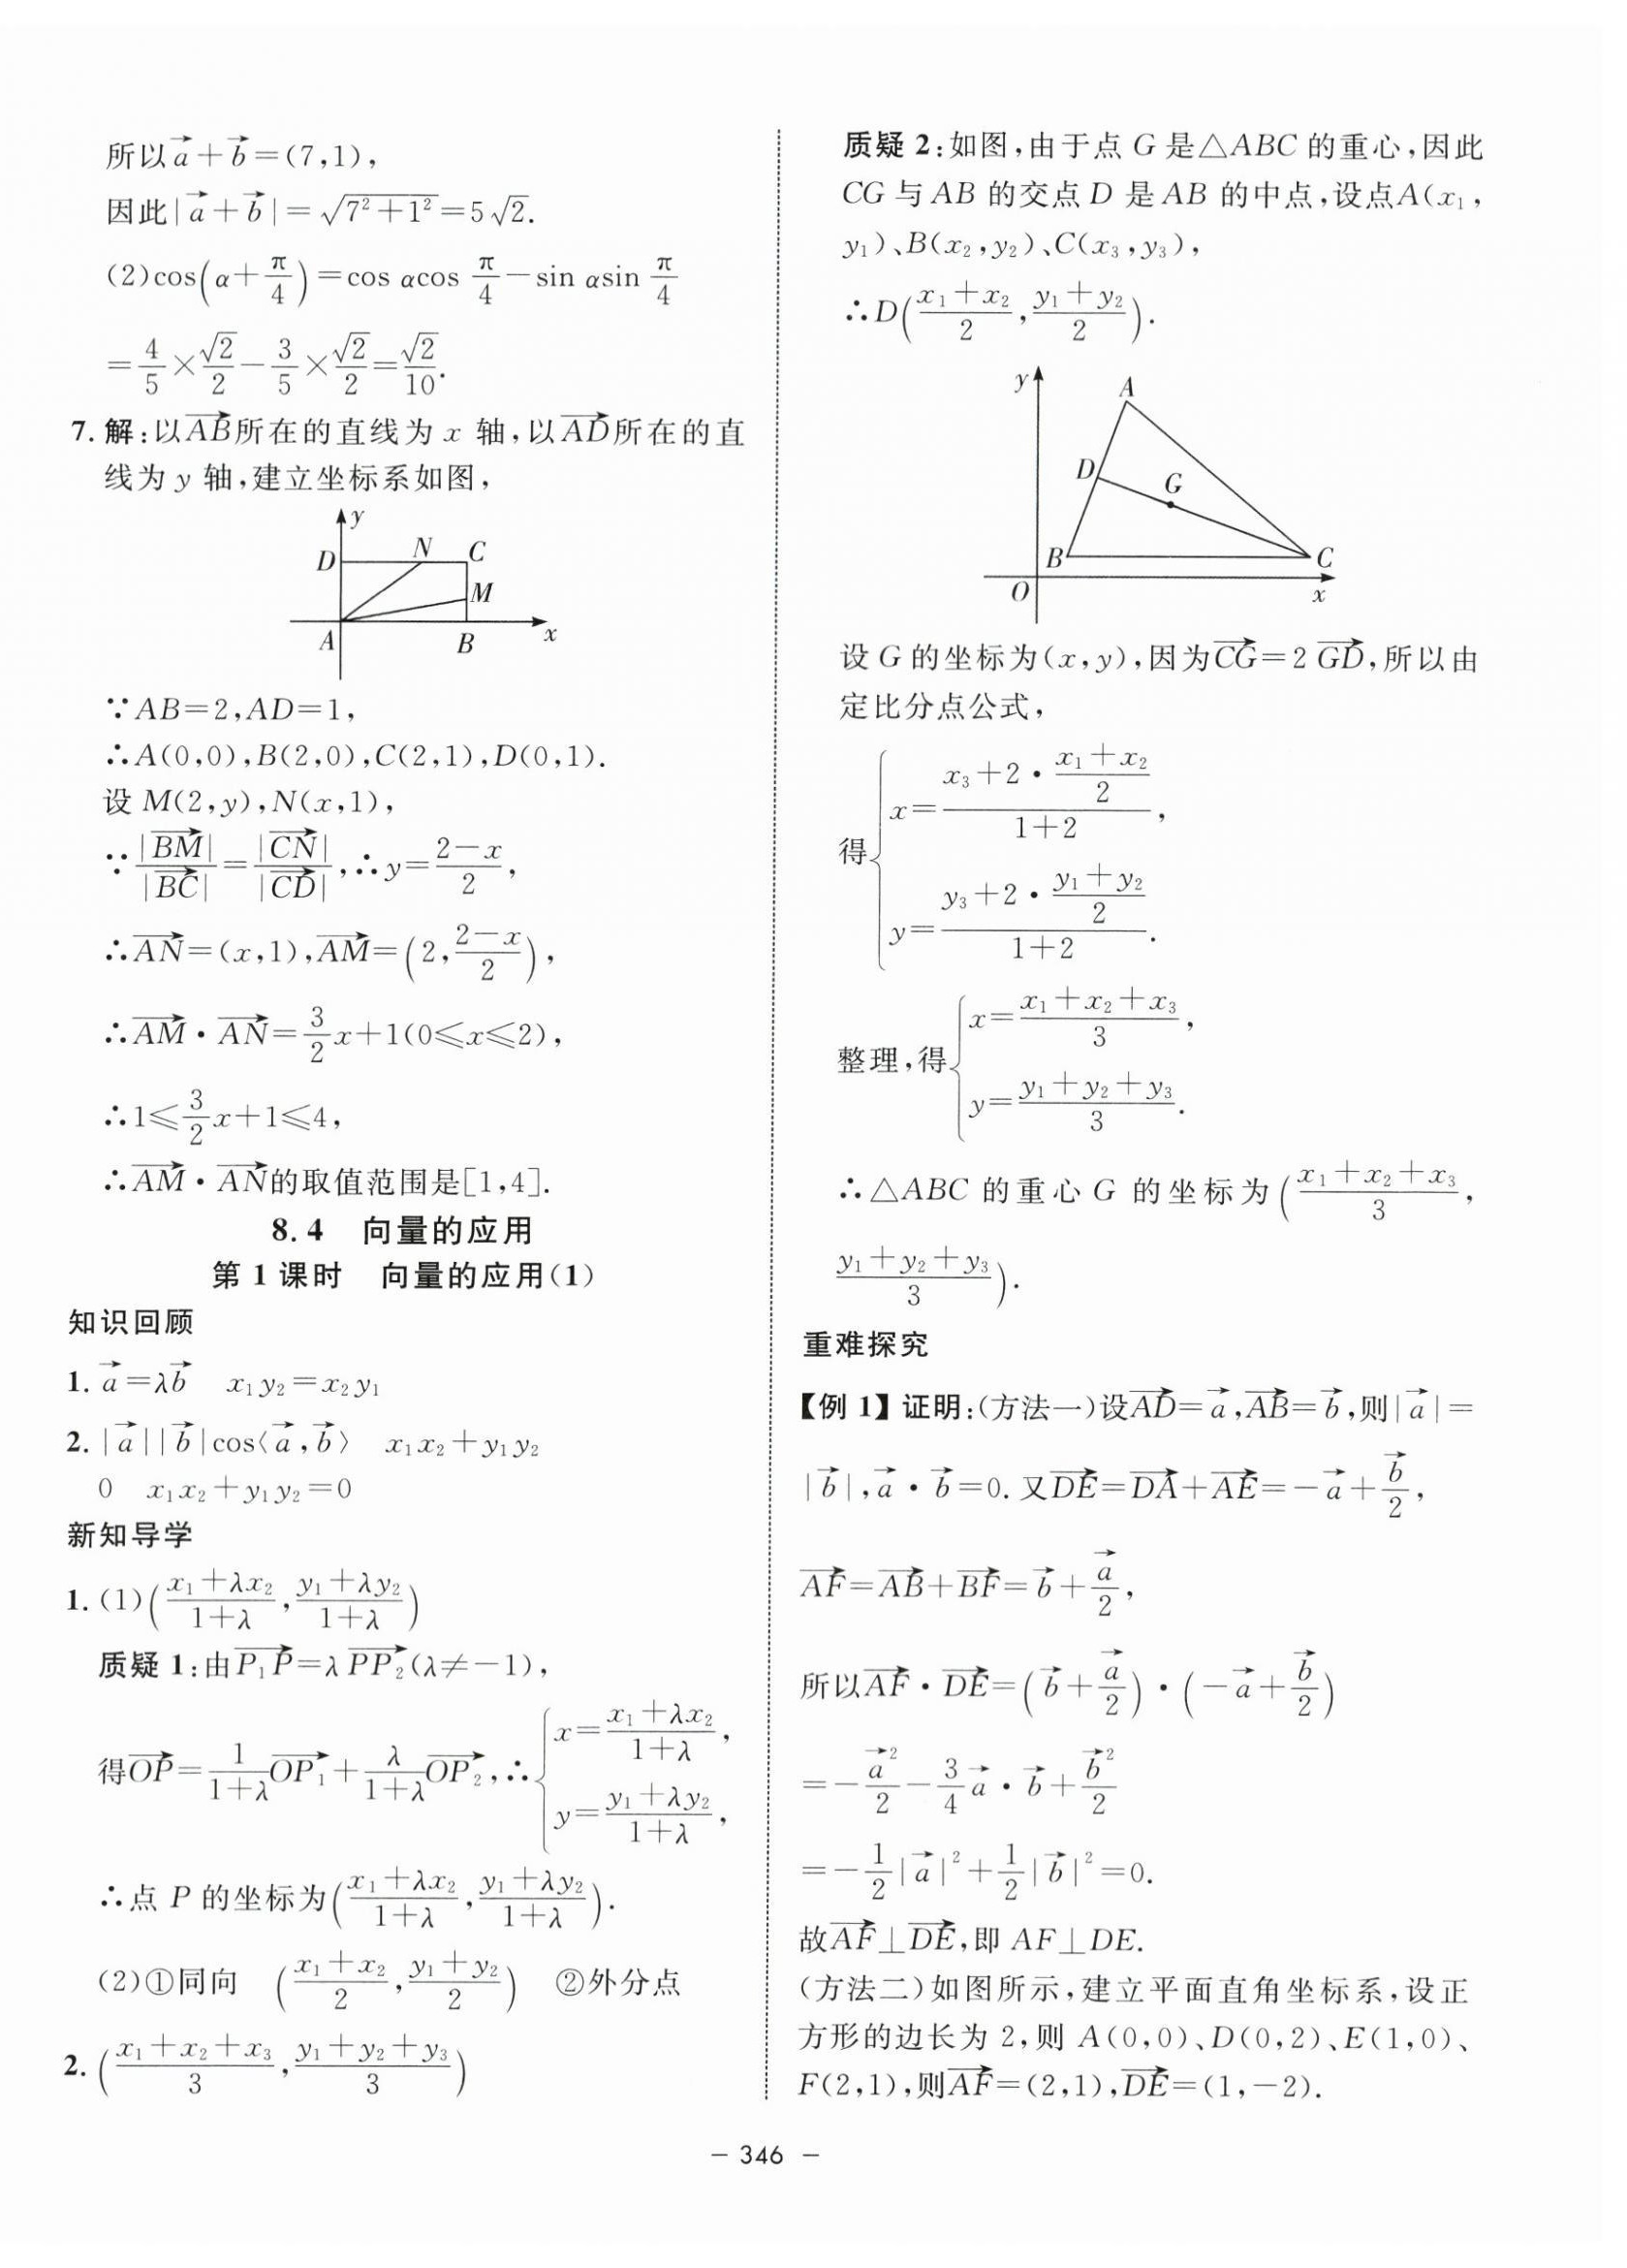 所以$\vec{a}+\vec{b}=(7,1)$,
因此$|\vec{a}+\vec{b}|=\sqrt{7^2+1^2}=5\sqrt{2}$.
(2)$\cos\left(α+\frac{π}{4}\right)=\cos α\cos\frac{π}{4}-\sin α\sin\frac{π}{4}$
$=\frac{4}{5}×\frac{\sqrt{2}}{2}-\frac{3}{5}×\frac{\sqrt{2}}{2}=\frac{\sqrt{2}}{10}$.
7. 解:以$\overrightarrow{AB}$所在的直线为 x 轴,以$\overrightarrow{AD}$所在的直
线为 y 轴,建立坐标系如图,
y
D N C
M
A B x
∵AB=2,AD=1,
∴A(0,0),B(2,0),C(2,1),D(0,1).
设 M(2,y),N(x,1),
∵$\frac{|\overrightarrow{BM}|}{|\overrightarrow{BC}|}=\frac{|\overrightarrow{CN}|}{|\overrightarrow{CD}|}$,∴$y=\frac{2-x}{2}$,
∴$\overrightarrow{AN}=(x,1)$,$\overrightarrow{AM}=\left(2,\frac{2-x}{2}\right)$,
∴$\overrightarrow{AM}·\overrightarrow{AN}=\frac{3}{2}x+1(0≤x≤2)$,
∴$1≤\frac{3}{2}x+1≤4$,
∴$\overrightarrow{AM}·\overrightarrow{AN}$的取值范围是[1,4].
8.4 向量的应用
第 1 课时 向量的应用(1)
知识回顾
1. $\vec{a}=λ\vec{b}$ $x_1y_2=x_2y_1$
2. $|\vec{a}||\vec{b}|\cos〈\vec{a},\vec{b}〉$ $x_1x_2+y_1y_2$
0 $x_1x_2+y_1y_2=0$
新知导学
1. (1)$\left(\frac{x_1+λx_2}{1+λ},\frac{y_1+λy_2}{1+λ}\right)$
质疑 1:由$\overrightarrow{P_1P}=λ\overrightarrow{PP_2}(λ≠-1)$,
得$\overrightarrow{OP}=\frac{1}{1+λ}\overrightarrow{OP_1}+\frac{λ}{1+λ}\overrightarrow{OP_2}$,∴$\begin{cases}x=\frac{x_1+λx_2}{1+λ},\\y=\frac{y_1+λy_2}{1+λ},\end{cases}$
∴点 P 的坐标为$\left(\frac{x_1+λx_2}{1+λ},\frac{y_1+λy_2}{1+λ}\right)$.
(2)①同向 $\left(\frac{x_1+x_2}{2},\frac{y_1+y_2}{2}\right)$ ②外分点
2. $\left(\frac{x_1+x_2+x_3}{3},\frac{y_1+y_2+y_3}{3}\right)$
质疑 2:如图,由于点 G 是△ABC 的重心,因此
CG 与 AB 的交点 D 是 AB 的中点,设点$A(x_1,$
$y_1)$、$B(x_2,y_2)$、$C(x_3,y_3)$,
∴$D\left(\frac{x_1+x_2}{2},\frac{y_1+y_2}{2}\right)$.
y A
D G
B C
O x
设 G 的坐标为(x,y),因为$\overrightarrow{CG}=2\overrightarrow{GD}$,所以由
定比分点公式,
得$\begin{cases}x=\frac{x_3+2·\frac{x_1+x_2}{2}}{1+2},\\y=\frac{y_3+2·\frac{y_1+y_2}{2}}{1+2}.\end{cases}$
整理,得$\begin{cases}x=\frac{x_1+x_2+x_3}{3},\\y=\frac{y_1+y_2+y_3}{3}.\end{cases}$
∴△ABC 的重心 G 的坐标为$\left(\frac{x_1+x_2+x_3}{3},\right.$
$\left.\frac{y_1+y_2+y_3}{3}\right)$.
重难探究
【例 1】证明:(方法一)设$\overrightarrow{AD}=\vec{a}$,$\overrightarrow{AB}=\vec{b}$,则$|\vec{a}|=$
$|\vec{b}|$,$\vec{a}·\vec{b}=0$. 又$\overrightarrow{DE}=\overrightarrow{DA}+\overrightarrow{AE}=-\vec{a}+\frac{\vec{b}}{2}$,
$\overrightarrow{AF}=\overrightarrow{AB}+\overrightarrow{BF}=\vec{b}+\frac{\vec{a}}{2}$,
所以$\overrightarrow{AF}·\overrightarrow{DE}=\left(\vec{b}+\frac{\vec{a}}{2}\right)·\left(-\vec{a}+\frac{\vec{b}}{2}\right)$
$=-\frac{\vec{a}^2}{2}-\frac{3}{4}\vec{a}·\vec{b}+\frac{\vec{b}^2}{2}$
$=-\frac{1}{2}|\vec{a}|^2+\frac{1}{2}|\vec{b}|^2=0$.
故$\overrightarrow{AF}⊥\overrightarrow{DE}$,即 AF⊥DE.
(方法二)如图所示,建立平面直角坐标系,设正
方形的边长为 2,则 A(0,0)、D(0,2)、E(1,0)、
F(2,1),则$\overrightarrow{AF}=(2,1)$,$\overrightarrow{DE}=(1,-2)$.
– 346 –